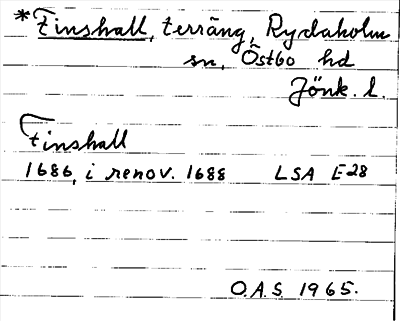 *Finshall, terräng, Rydaholm
sn, Östbo hd
Jönk. l.
Finshall
1686, i renov. 1688 LSA E28
O.A.S 1965.